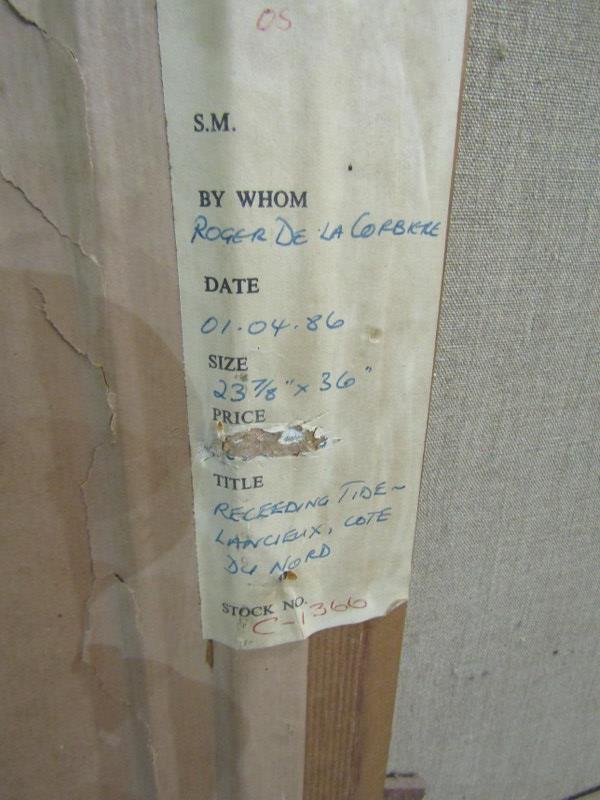 OS
S.M.
BY WHOM
ROGER DE LA CORBIERE
DATE
01.04.86
SIZE
23 7/8" x 36"
PRICE
TITLE
RECEEDING TIDE~
LANCIEUX, COTE
DU NORD
STOCK NO.
C-1366